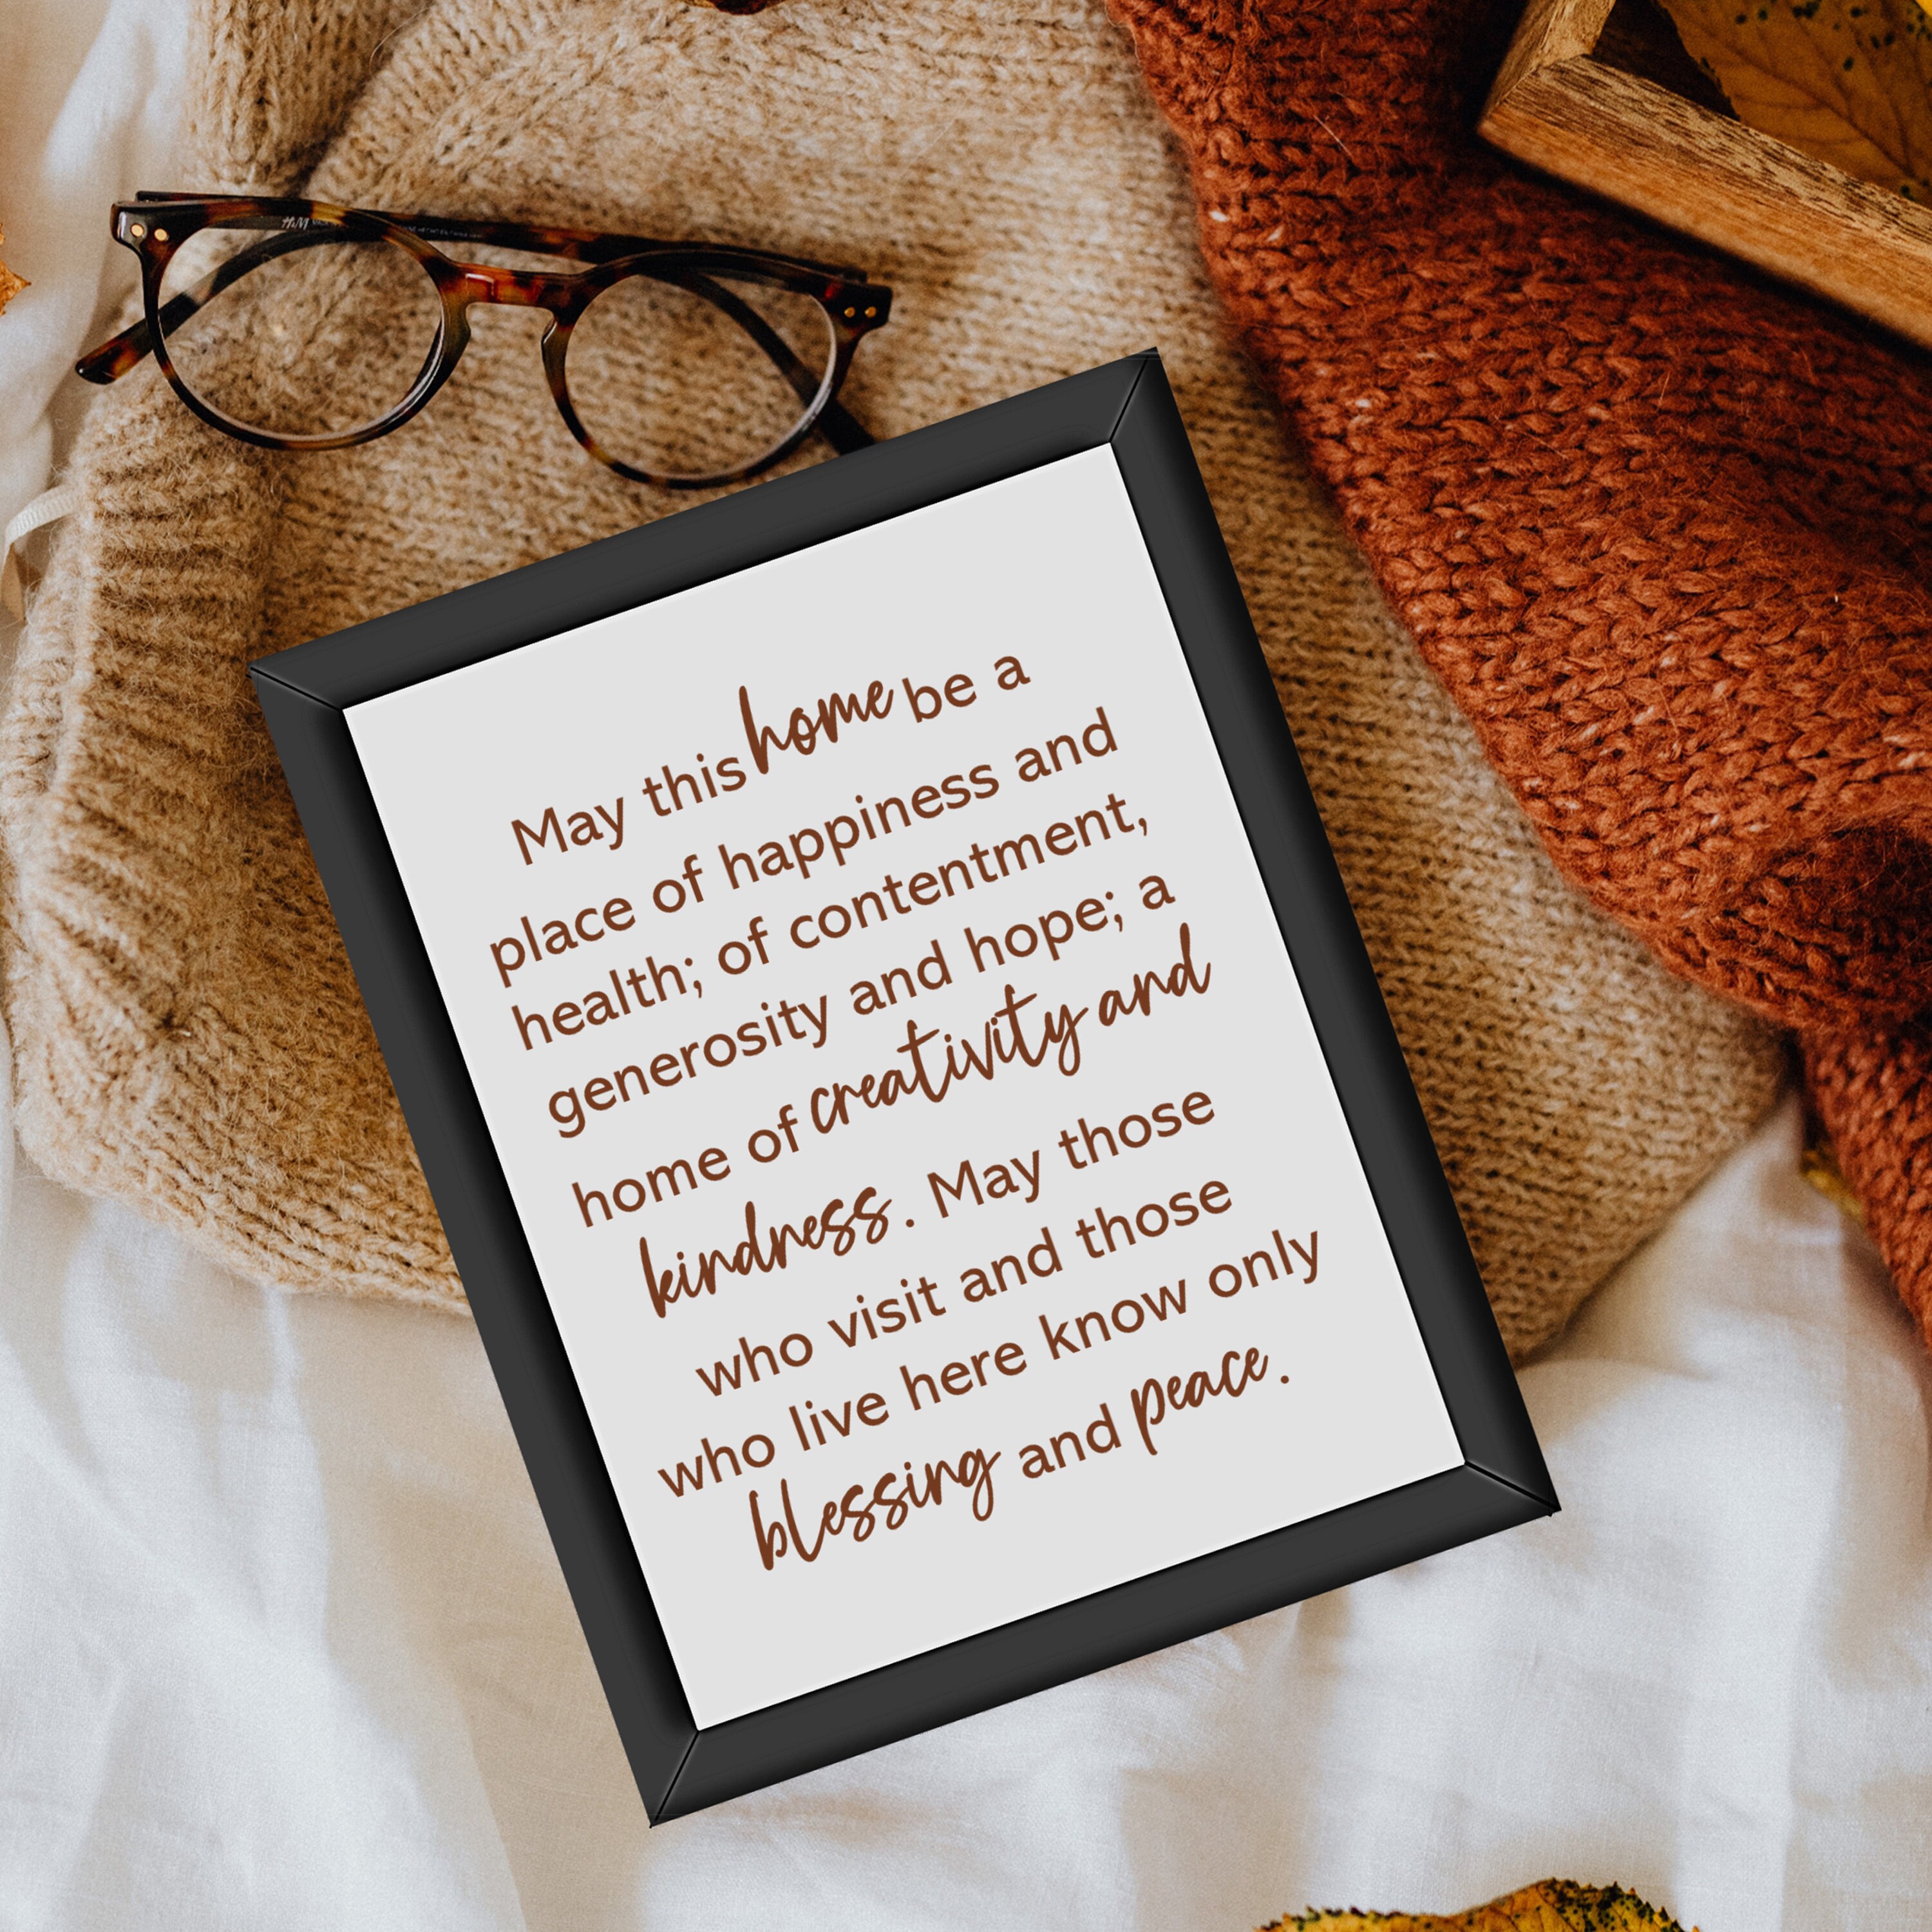 H&M
May this home be a
place of happiness and
health; of contentment,
generosity and hope; a
home of creativity and
kindness. May those
who visit and those
who live here know only
blessing and peace.